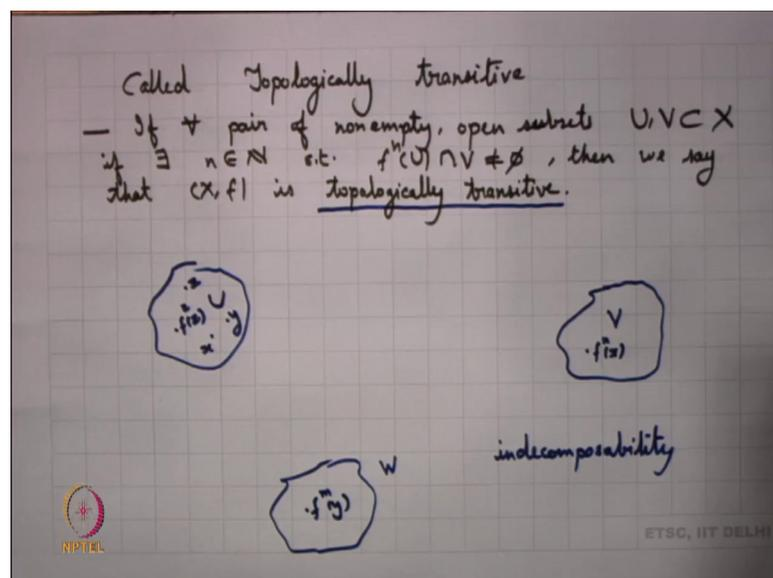 Called Topologically transitive
— If ∀ pair of nonempty, open subsets U, V ⊂ X
if ∃ n ∈ ℕ s.t. fⁿ(U) ∩ V ≠ ∅, then we say
that (X, f) is topologically transitive.
.z
U
.fⁿ(z)
.y
x.
V
.fⁿ(x)
indecomposability
W
.fᵐ(y)
NPTEL
ETSC, IIT DELHI